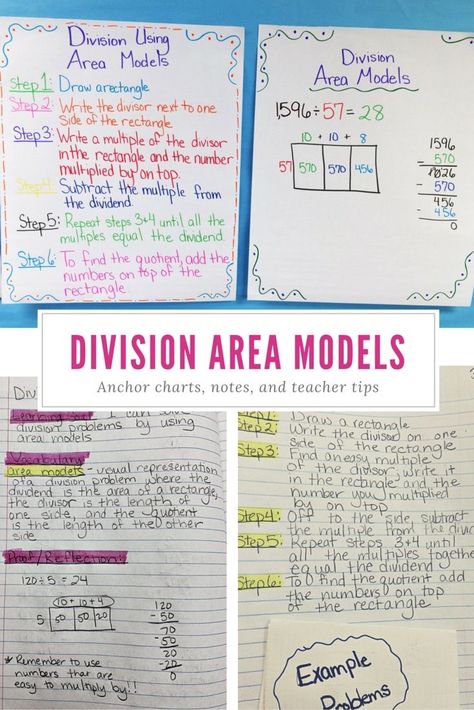 Division Using
Area Models
Step 1: Draw a rectangle
Step 2: Write the divisor next to one
side of the rectangle
Step 3: Write a multiple of the divisor
in the rectangle and the number
multiplied by on top.
Step 4: Subtract the multiple from
the dividend.
Step 5: Repeat steps 3+4 until all the
multiples equal the dividend.
Step 6: To find the quotient, add the
numbers on top of the
rectangle.
Division
Area Models
1,596 ÷ 57 = 28
10 + 10 + 8
57 570 570 456
1596
- 570
1026
- 570
456
- 456
0
DIVISION AREA MODELS
Anchor charts, notes, and teacher tips
Learning I can
division problems by using
area models
Vocabulary
area models - visual representation
of a division problem where the
dividend is the area of a rectangle,
the divisor is the length of
one side, and the quotient
is the length of the other
side.
Proof/Reflection:
120 ÷ 5 = 24
10 + 10 + 4
5 50 50 20
120
- 50
70
- 50
20
- 20
0
* Remember to use
numbers that are
easy to multiply by!!
Step 1: Draw a rectangle
Step 2: Write the divisor on one
side of the rectangle
Step 3: Find an easy multiple
of the divisor, write it
in the rectangle and the
number you multiplied
by on top
Step 4: Off to the side, subtract
the multiple from the
Step 5: Repeat steps 3+4 until
all the multiples together
equal the dividend
Step 6: To find the quotient add
the numbers on top of
the rectangle
Example
Problems